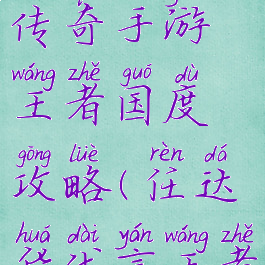 传奇手游
wáng zhě guó dù
王者国度
gōng lüè rèn dá
攻略(任达
huá dài yán wáng zhě
华代言王者